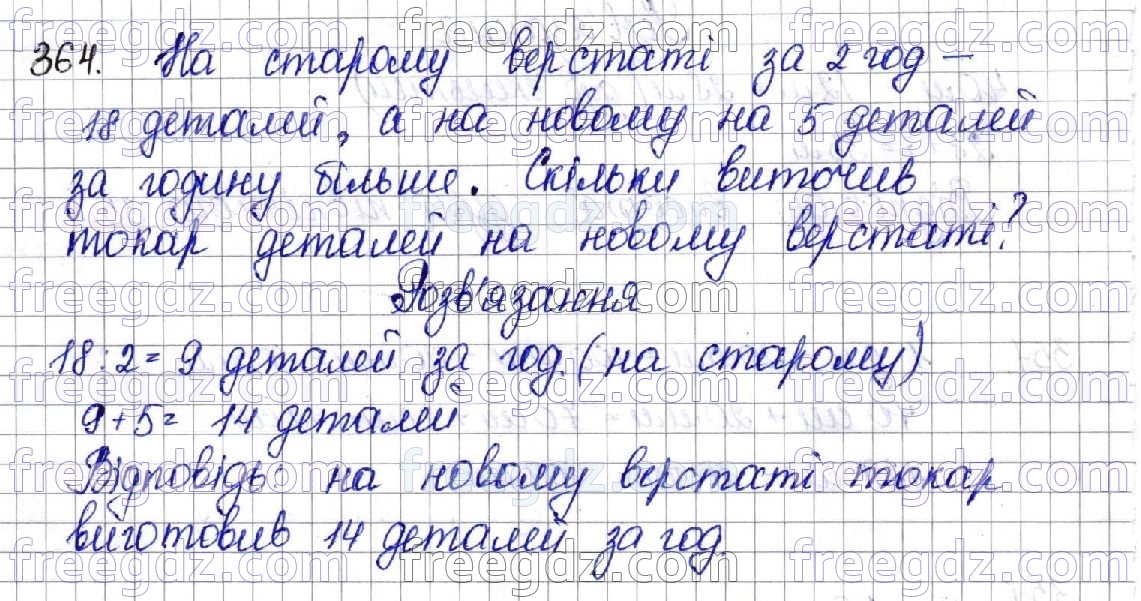 364. На старому верстаті за 2 год –
18 деталей, а на новому на 5 деталей
за годину більше. Скільки виточив
токар деталей на новому верстаті?
Розв'язання
18 : 2 = 9 деталей за год. (на старому)
9 + 5 = 14 деталей
Відповідь: на новому верстаті токар
виготовив 14 деталей за год.
freegdz.com